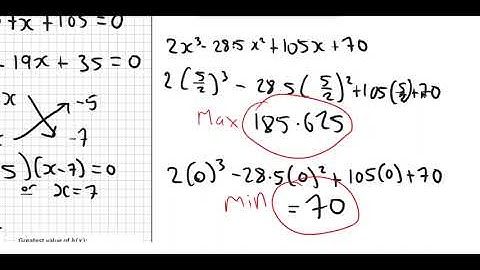 +x + 105 = 0
- 19x + 35 = 0
x
-5
-7
5)(x-7) = 0
or x = 7
Greatest value of h(x):
2x³ - 28.5x² + 105x + 70
2(5/2)³ - 28.5(5/2)² + 105(5/2) + 70
Max 185.625
2(0)³ - 28.5(0)² + 105(0) + 70
Min = 70